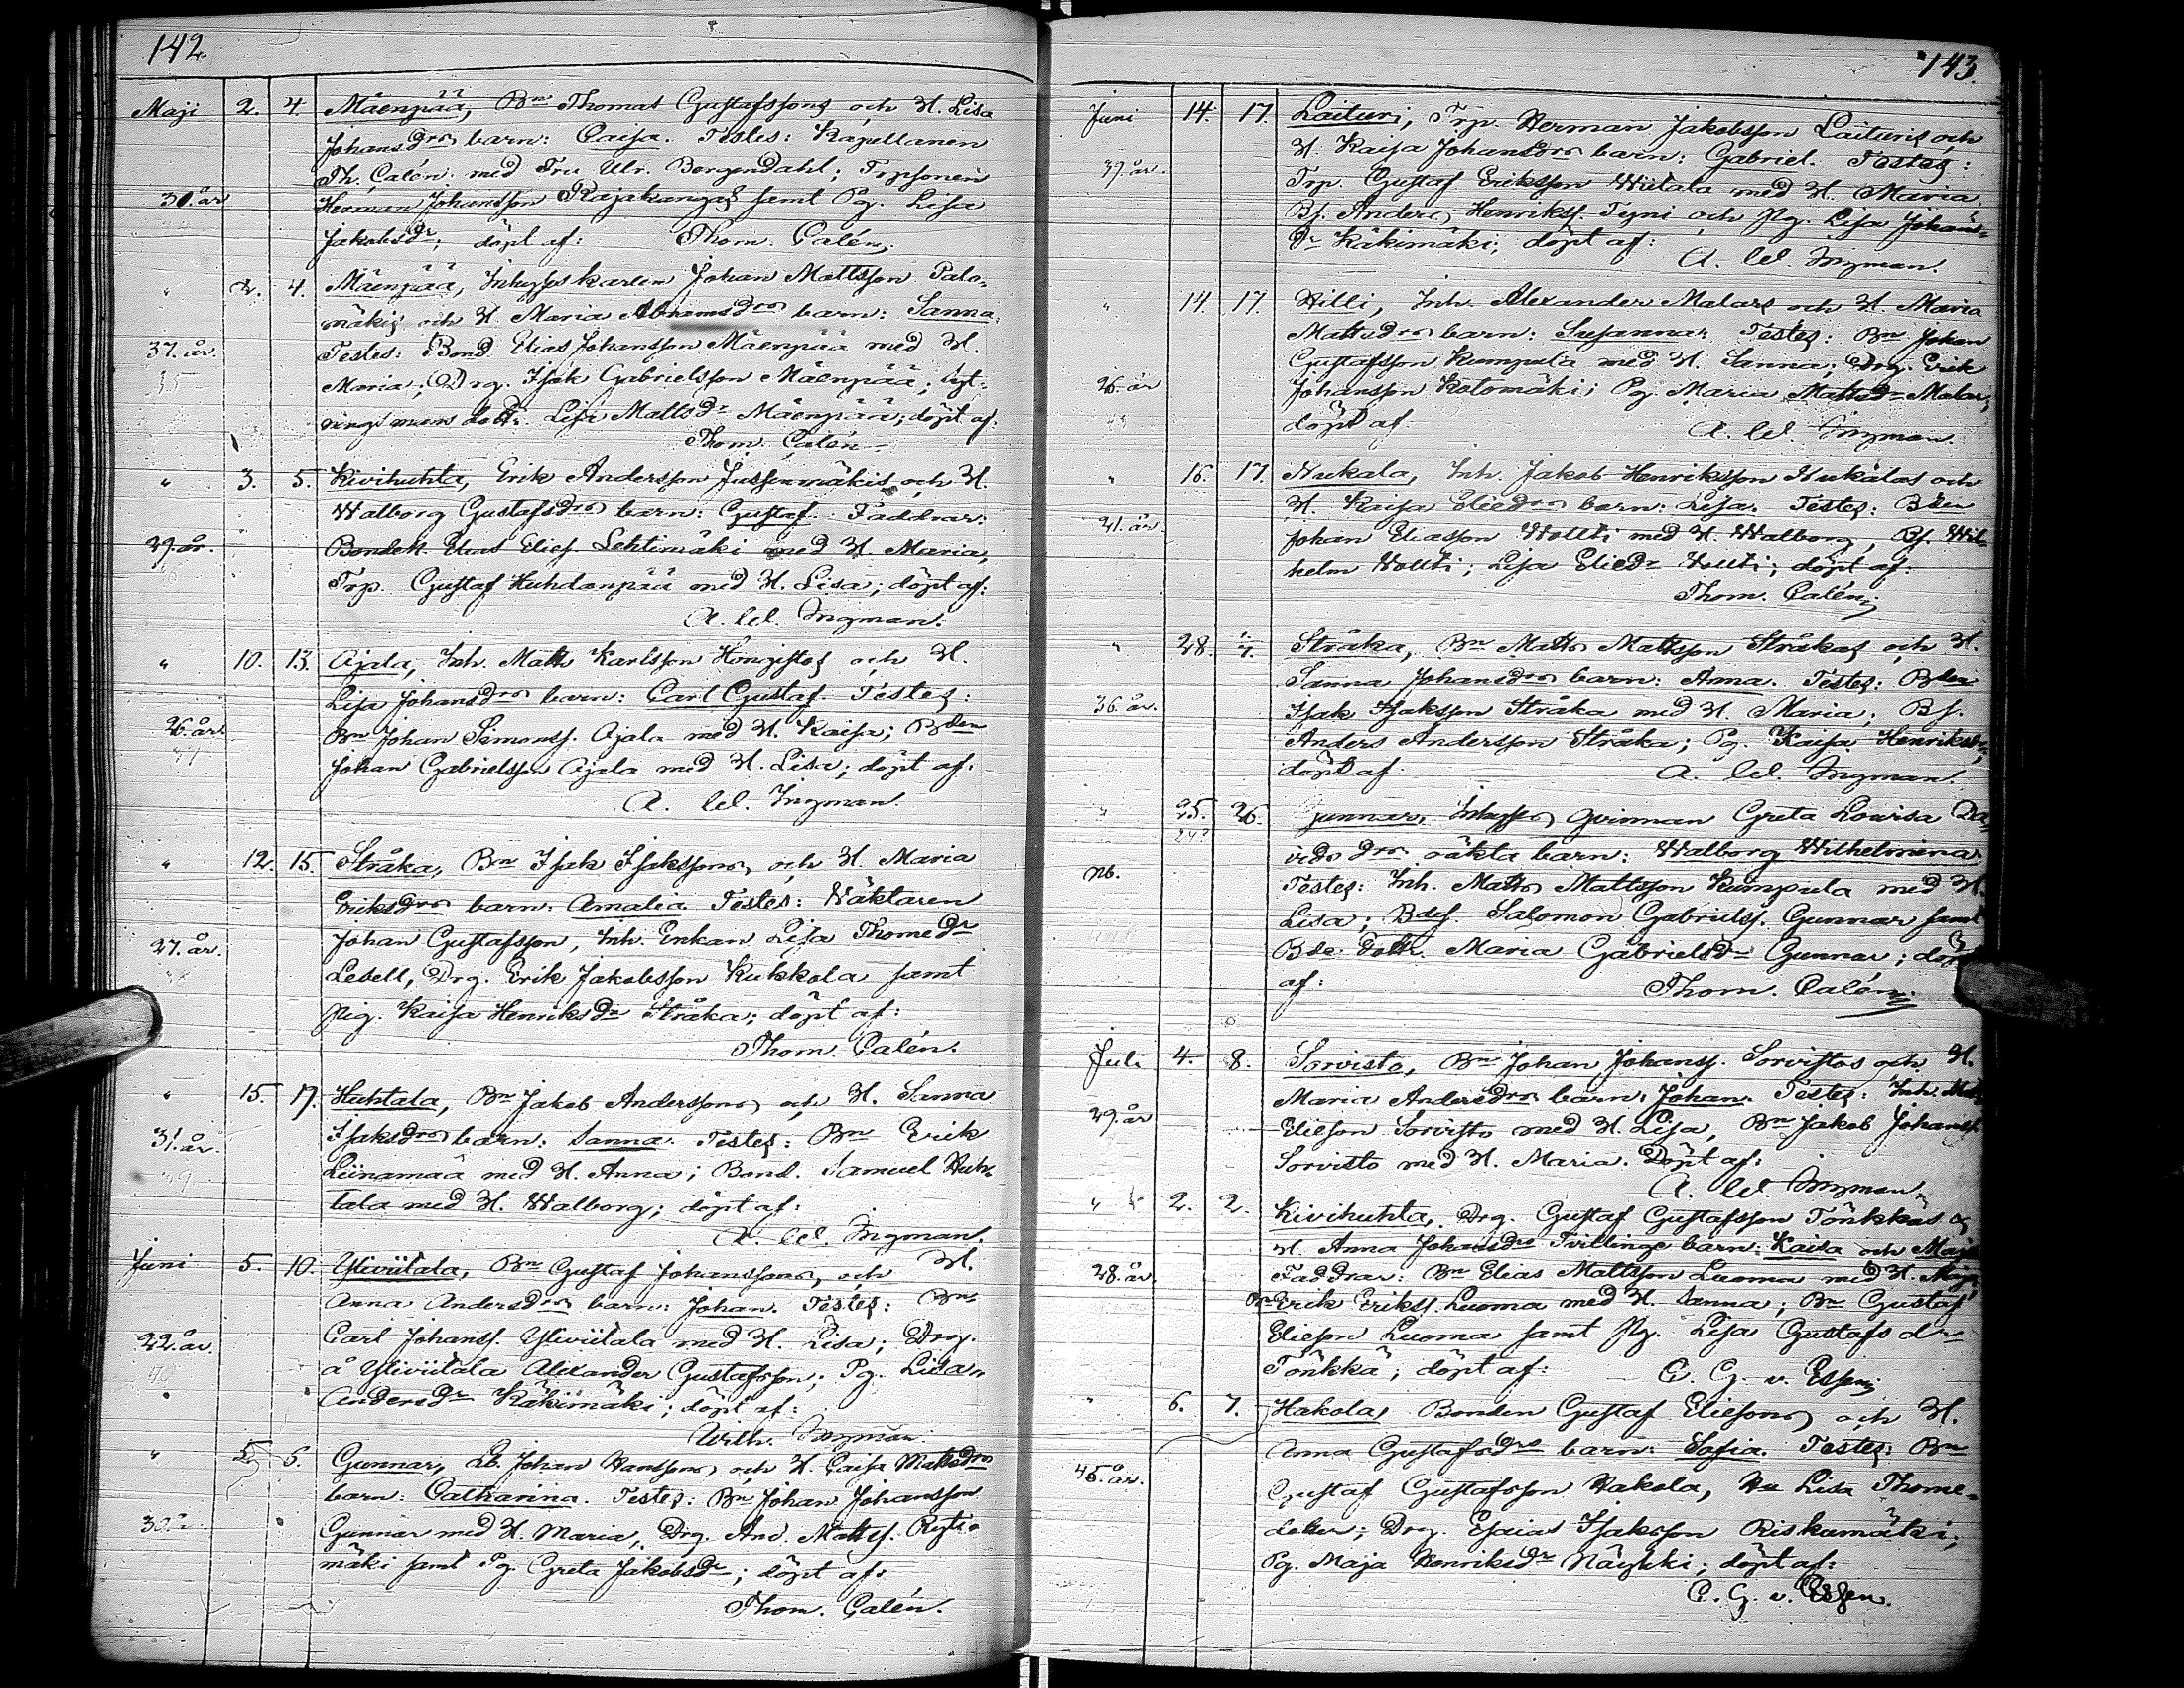 142.
Maji 2. 4. Mäenpää, Bn Thomas Gustafssons och H. Lisa
Johansdrs barn: Caisa. Testes: Kapellanen
Th. Calén med Fru Ulr. Borgendahl; Trpsonen
30. år Herman Johansson Rajakangas samt Pg. Lisa
Jakobsdr; döpt af: Thom. Calén.
" 2. 4. Mäenpää, Inhysskarlen Johan Mattsson Palo-
mäkis och H. Maria Abramsdrs barn: Sanna.
37. år. Testes: Bond. Elias Johansson Mäenpää med H.
35 Maria; Drg. Isak Gabrielsson Mäenpää;
dott. Lisa Mattsdr Mäenpää; döpt af:
Thom. Calén.
" 3. 5. Kivihuhta, Erik Andersson Jussinmäkis och H.
Walborg Gustafsdrs barn: Gustaf. Faddrar:
29. år. Bonden Elias Elies. Lehtimäki med H. Maria,
Trp. Gustaf Huhdanpää med H. Lisa; döpt af:
A. W. Ingman.
" 10. 13. Ajala, Inh. Matts Karlsson Hongistos och H.
Lisa Johansdrs barn: Carl Gustaf. Testes:
26. år Bn Johan Simonss. Ajala med H. Kaisa; Bden
Johan Gabrielsson Ajala med H. Lisa; döpt af:
A. W. Ingman.
" 12. 15. Stråka, Bn Isak Isakssons och H. Maria
Eriksdrs barn: Amalia. Testes: Väktaren
27. år. Johan Gustafsson, Inh. Enkan Lisa Thomedr
Ledell, Drg. Erik Jakobsson Kukkola samt
Pig. Kaisa Henriksdr Stråka; döpt af:
Thom. Calén.
" 15. 17. Huhtala, Bn Jakob Anderssons och H. Sanna
31. år. Isaksdrs barn: Sanna. Testes: Bn Erik
Liinamaa med H. Anna; Bond. Samuel Huh-
tala med H. Walborg; döpt af:
A. W. Ingman.
Juni 5. 10. Yliviitala, Bn Gustaf Johanssons, och H.
Anna Andersdrs barn: Johan. Testes: Bn
22. år. Carl Johanss. Yliviitala med H. Lisa; Drg.
å Yliviitala Alexander Gustafsson; Pg. Lisa
Andersdr Käkimäki; döpt af:
Wilh. Ingman.
" 5 6. Gunnar, Lb. Johan Hanssons och H. Caisa Mattsdrs
barn: Catharina. Testes: Bn Johan Johansson
30. Gunnar med H. Maria, Drg. And. Mattss.
mäki samt Pg. Greta Jakobsdr; döpt af:
Thom. Calén.
143.
Juni 14. 17. Laituri, Trp. Herman Jakobsson Laituris och
39. år. H. Kaisa Johansdrs barn: Gabriel. Testes:
Trp. Gustaf Eriksson Wiitala med H. Maria,
Bs. Anders Henrikss. Tyni och Pg. Lisa Johans-
dr Käkimäki; döpt af:
A. W. Ingman.
" 14. 17. Hilli, Inh. Alexander Malars och H. Maria
Mattsdrs barn: Susanna. Testes: Bn Johan
Gustafsson Kumpula med H. Sanna; Drg. Erik
26. år Johansson Kotomäki; Pg. Maria Mattsdr Malar;
döpt af: A. W. Ingman.
" 16. 17. Nukala, Inh. Jakob Henriksson Nukalas och
H. Kaisa Eliedrs barn: Lisa. Testes: Bden
21. år. Johan Eliasson Wolтti med H. Walborg, Bs. Wil-
helm Woltti; Lisa Eliedr Woltti; döpt af:
Thom. Calén.
" 28. 1/7. Stråka, Bn Matts Mattsson Stråkas och H.
Sanna Johansdrs barn: Anna. Testes: Bden
36. år. Isak Isaksson Stråka med H. Maria; Bs.
Anders Andersson Stråka; Pg. Kaisa Henriksdr,
döpt af: A. W. Ingman.
" 25. 26. Gunnar, Inhysses qvinnan Greta Lovisa Da-
24? vidsdrs oäkta barn: Walborg Wilhelmina.
nb. Testes: Inh. Matts Mattsson Kumpula med H.
Lisa; Bdes. Salomon Gabrielss. Gunnar samt
Bde. Dottr. Maria Gabrielsdr Gunnar; döpt
af: Thom. Calén.
Juli 4. 8. Sorvisto, Bn Johan Johanss. Sorvistos och H.
29. år Maria Andersdrs barn: Johan. Testes: Inh.
Elieson Sorvisto med H. Lisa, Bn Jakob Johanss.
Sorvisto med H. Maria. Döpt af:
A. W. Ingman.
" 2. 2. Kivihuhta, Drg. Gustaf Gustafsson Tönkkäs o.
H. Anna Johansdrs Tvillinge barn: Kaisa och Maja
28. år. Faddrar: Bn Elias Mattsson Luoma med H. Maja,
Bn Erik Erikss. Luoma med H. Sanna; Bn Gustaf
Elieson Luoma samt Pg. Lisa Gustafsdr
Tönkkä; döpt af: C. G. v. Essen.
" 6. 7. Hakola, Bonden Gustaf Eliesons och H.
Anna Gustafsdrs barn: Sofia. Testes: Bn
45. år. Gustaf Gustafsson Hakola, Hu Lisa Thome-
dotter; Drg. Esaias Isaksson Riskumäki;
Pg. Maja Henriksdr Näykki; döpt af:
C. G. v. Essen.